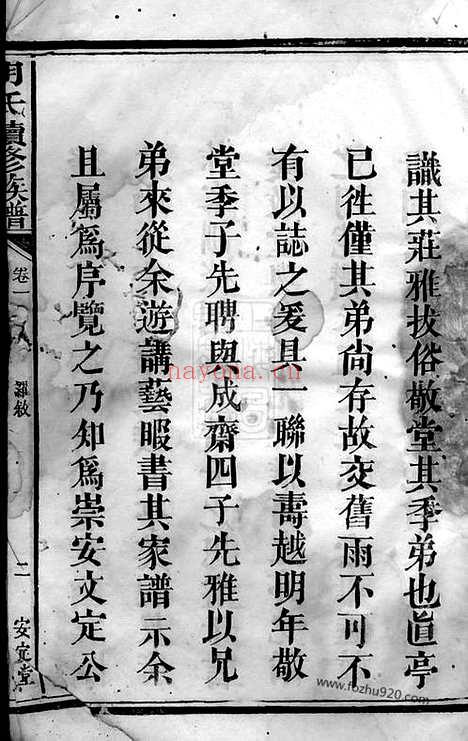 識其莊雅拔俗敬堂其季弟也眞亭
已徃僅其弟尙存故交舊雨不可不
有以誌之爰具一聯以壽越明年敬
堂季子先聘與成齋四子先雅以兄
弟來從余遊講藝暇書其家譜示余
且屬爲序覽之乃知爲崇安文定公
氏續修族譜
卷一
二
安定堂
nayona.cn
www.fozhu920.com